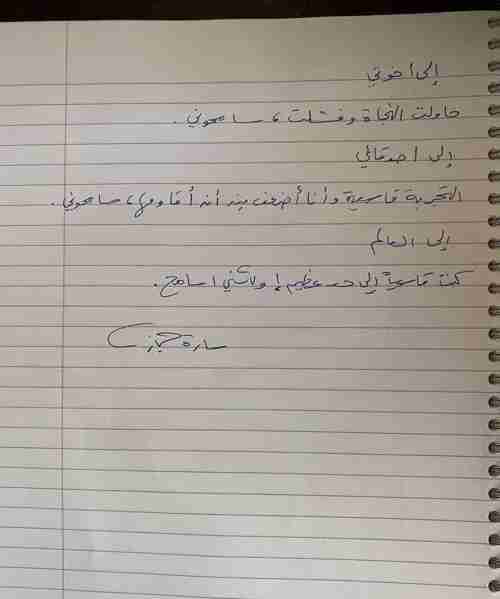 إلى أخوتي
حاولت النجاة وفشلت، سامحوني.
إلى أصدقائي
التجربة قاسية وأنا أضعف من أن أقاومها، سامحوني.
إلى العالم
كنت قاسياً إلى حد عظيم! ولكني أسامح.
سارة حجازي